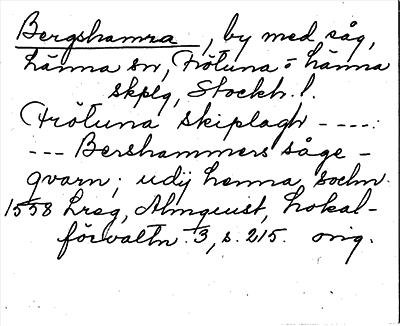 Bergshamra, by med såg,
Länna sn, Frötuna o Länna
skplg, Stockh. l.
Frötuna skiplagh ----:
--- Bershammers såge-
qvarn; udij Lenna sochn.
1558 Lreg, Almquist, Lokal-
förvaltn. 3, s. 215. orig.